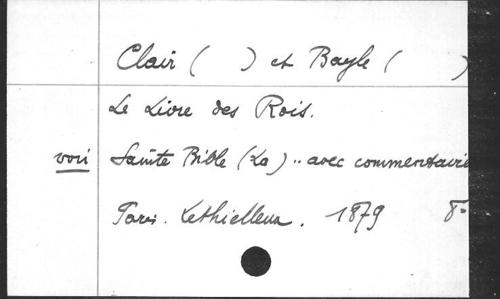 Clair ( ) et Bayle ( )
Le Livre des Rois.
voir Sainte Bible (La) .. avec commentaire
Paris. Lethielleux. 1879 8°